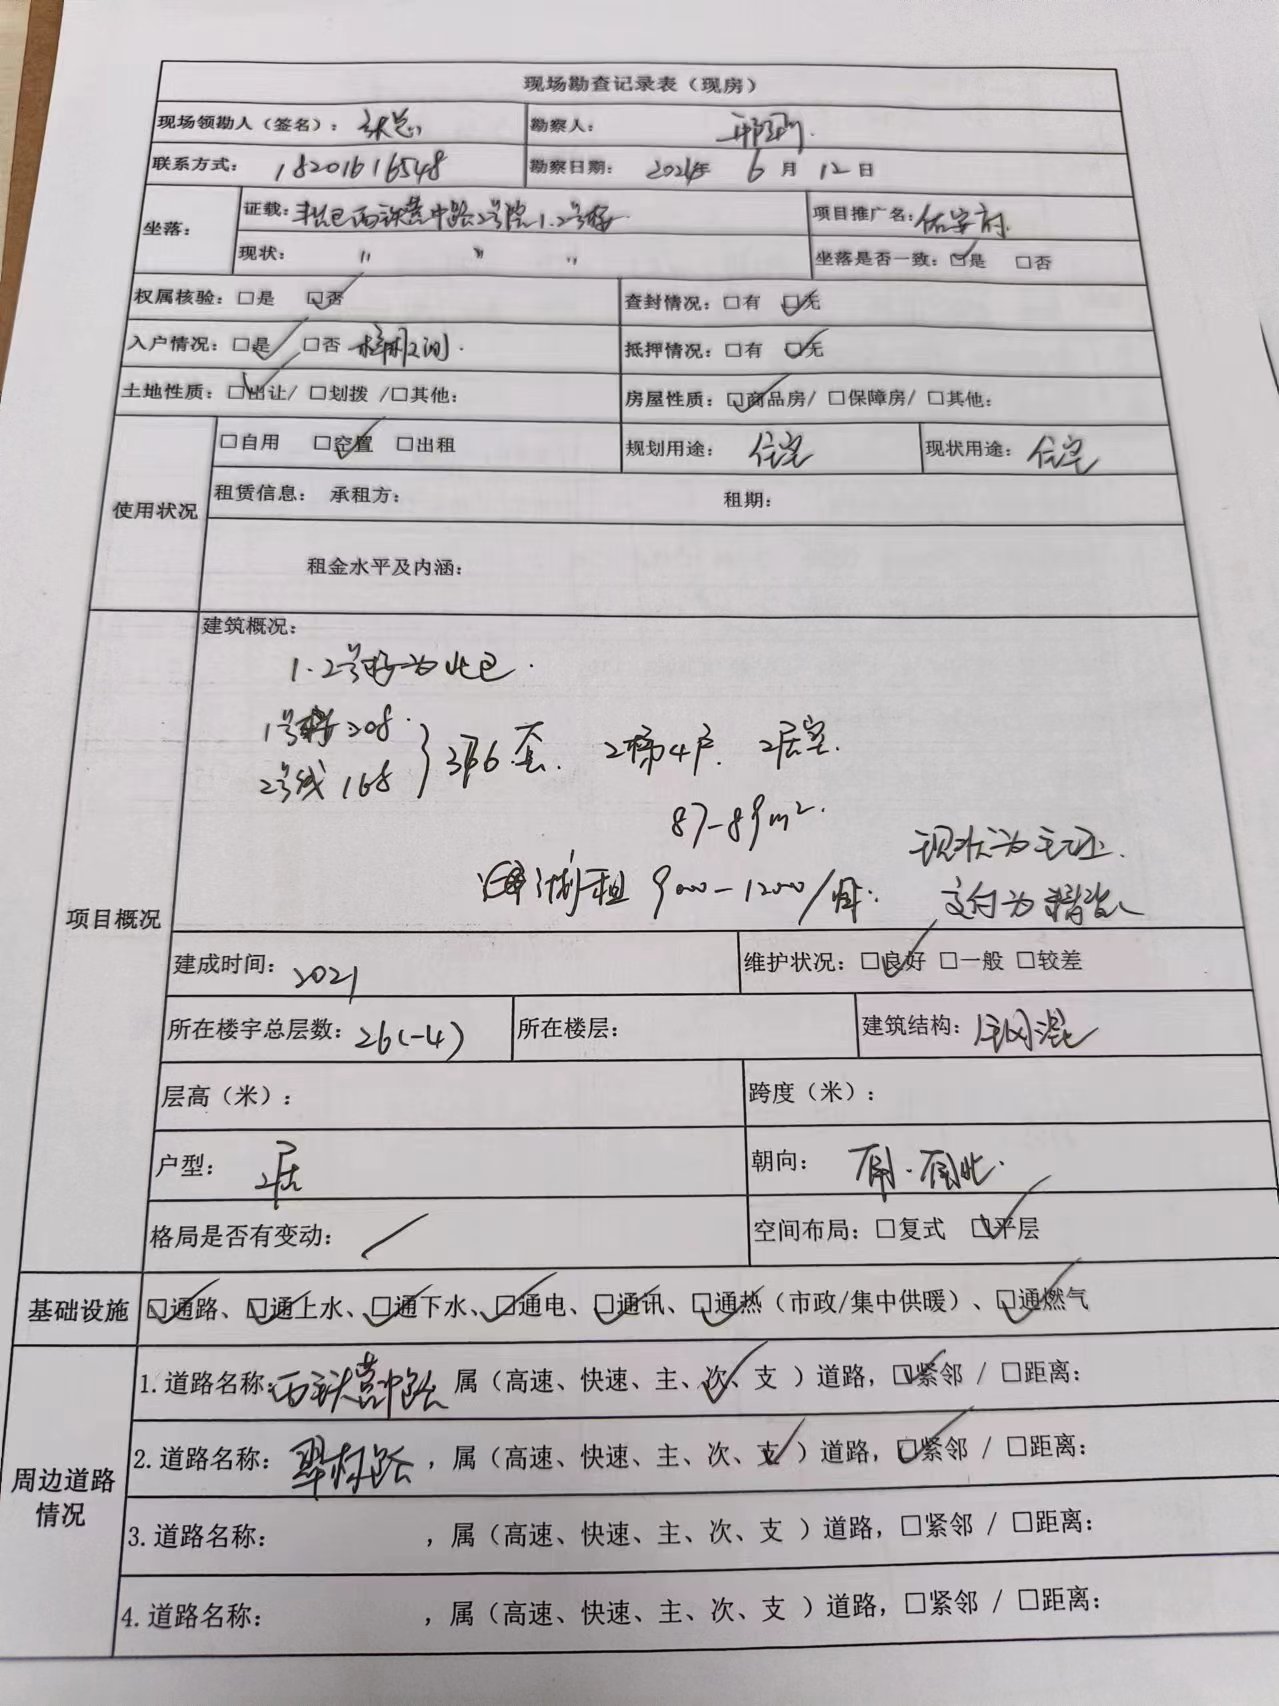 现场勘查记录表（现房）
现场领勘人（签名）：张总 勘察人：
联系方式：18201616548 勘察日期：2024年 6月 12日
坐落：
证载：丰台区西铁营中路2号院1.2号楼 项目推广名：佑安府
现状：〃 〃 〃 坐落是否一致：☑是 □否
权属核验：□是 ☑否 查封情况：□有 ☑无
入户情况：☑是 □否 样板间. 抵押情况：□有 ☑无
土地性质：☑出让/ □划拨 /□其他： 房屋性质：☑商品房/ □保障房/ □其他：
使用状况
□自用 ☑空置 □出租 规划用途：住宅 现状用途：住宅
租赁信息：承租方： 租期：
租金水平及内涵：
项目概况
建筑概况：
1.2号楼为
1号楼208.
2号线168 }376套. 2梯4户. 2居室.
87-89m².
现状为毛坯.
租9000-12000/月. 交付为精装
建成时间：2021 维护状况：☑良好 □一般 □较差
所在楼宇总层数：26(-4) 所在楼层： 建筑结构：钢混
层高（米）： 跨度（米）：
户型：2居 朝向：
格局是否有变动：／ 空间布局：□复式 ☑平层
基础设施 ☑通路、☑通上水、☑通下水、☑通电、☑通讯、☑通热（市政/集中供暖）、☑通燃气
周边道路情况
1.道路名称：西铁营中路 属（高速、快速、主、次、支 ）道路，☑紧邻 / □距离：
2.道路名称：翠林路 ，属（高速、快速、主、次、支 ）道路，☑紧邻 / □距离：
3.道路名称： ，属（高速、快速、主、次、支 ）道路，□紧邻 / □距离：
4.道路名称： ，属（高速、快速、主、次、支 ）道路，□紧邻 / □距离：